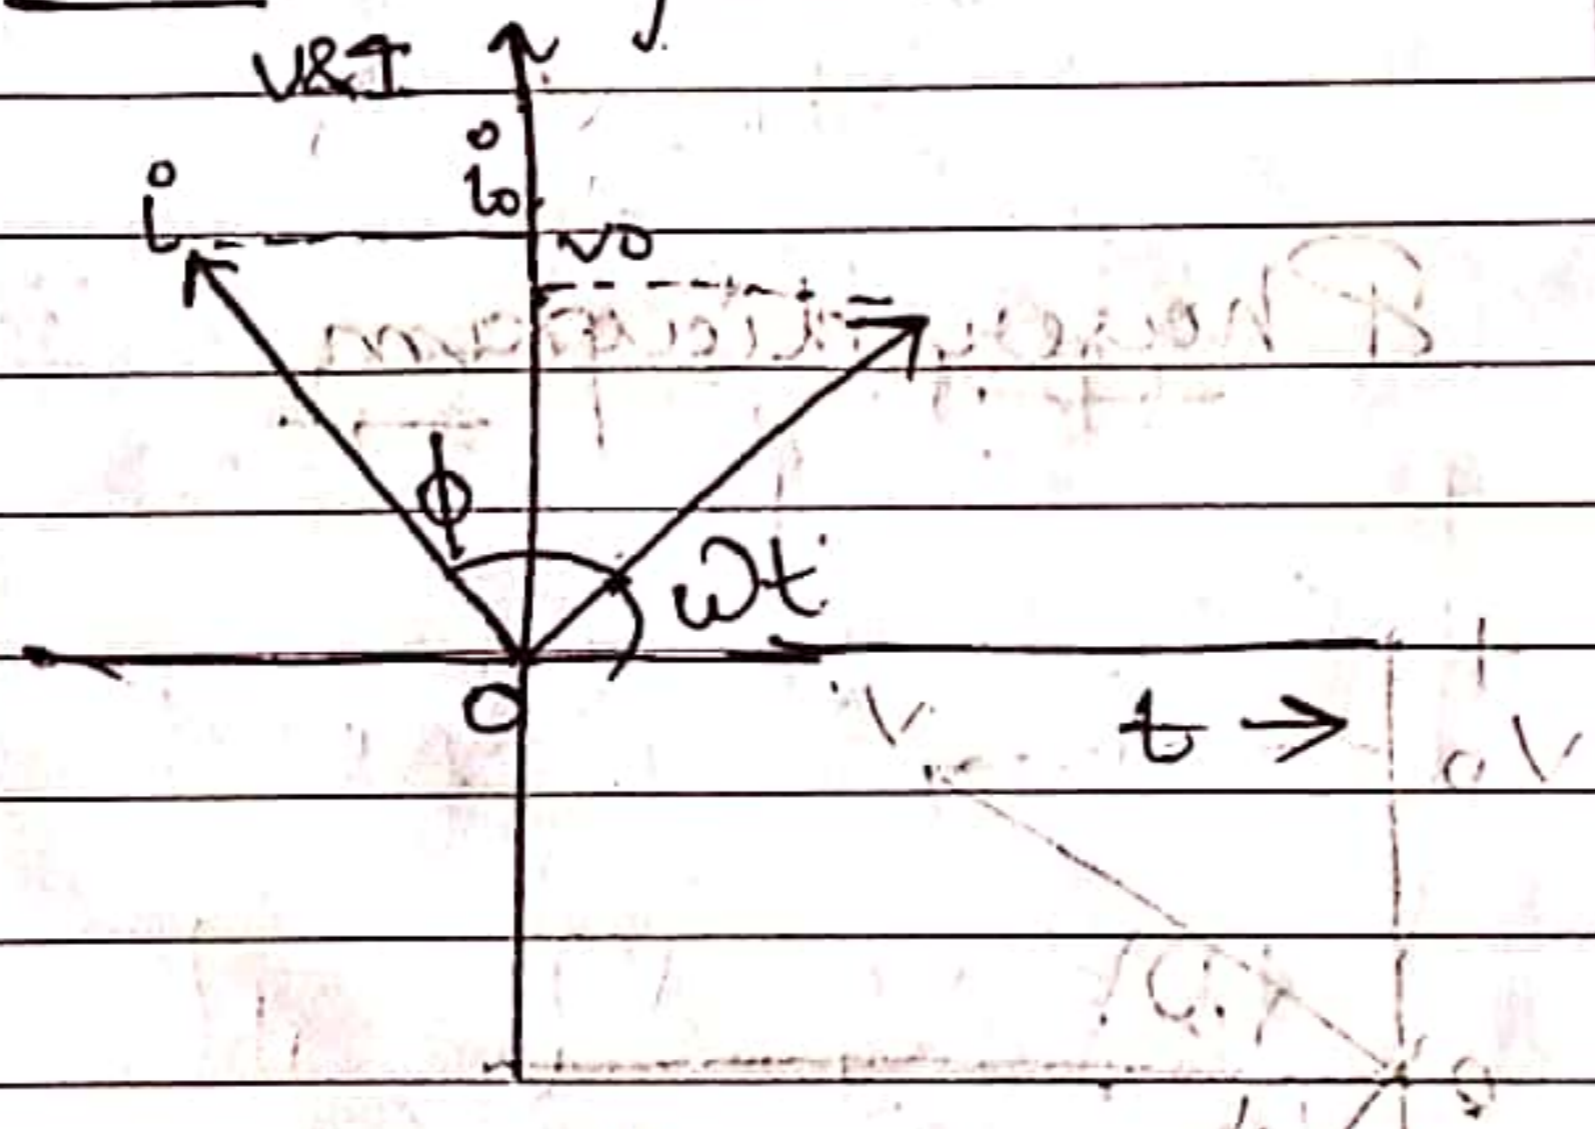 V&I
i
i₀
v₀
ϕ
ωt
O
t →